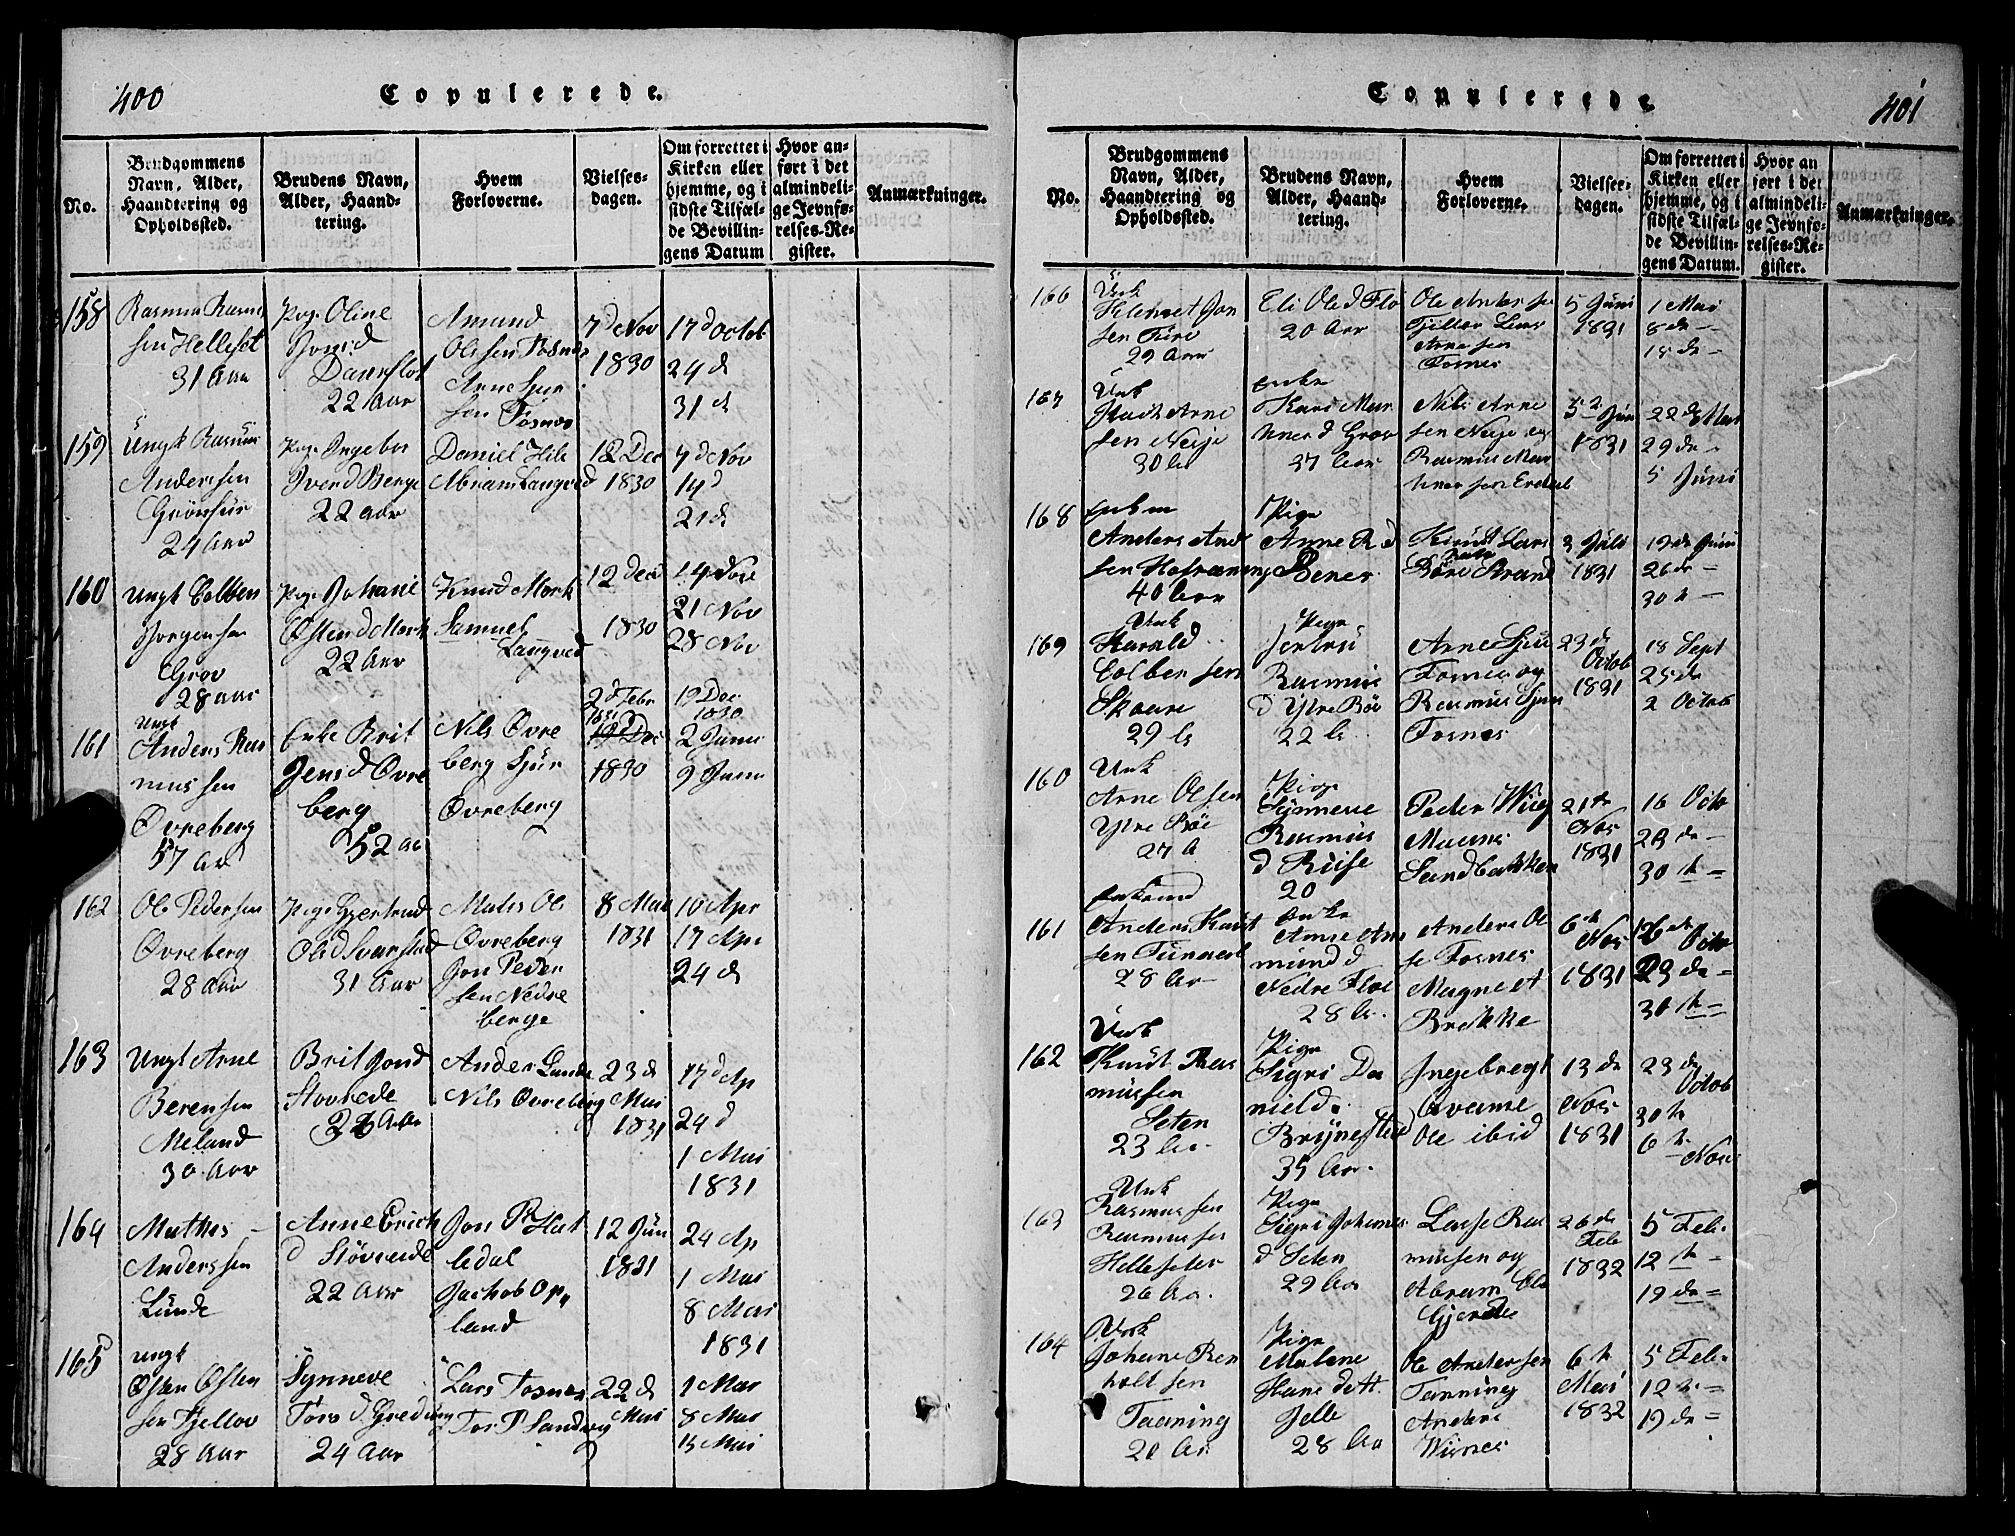 400
Copulerede.
No.
Brudgommens
Navn, Alder,
Haandtering og
Opholdssted.
Brudens Navn,
Alder, Haand-
tering.
Hvem
Forloverne.
Vielses-
dagen.
Om forrettet i
Kirken eller
hjemme, og i
sidste Tilfæl-
de Bevillin-
gens Datum
Hvor an-
ført i det
almindeli-
ge Jevnfø-
relses-Re-
gister.
Anmærkninger.
158
Rasmus Rasmu
sen Helleset
31 Aar
Pige Oline
Jonsd
22 Aar
Amund
Olssen Fosnes
Arne Sjur
sen Fosnes
7 d Nov
1830
17 d Octob
24 d
31 d
159
Ungk Rasmus
Anderssen
24 Aar
Pige Ingebor
Iver d Berge
22 Aar
Daniel Hile
Abram Langved
12 Dec
1830
7 d Nov
14 d
21 d
160
Ungk Colben
Jorgensen
Grov
28 Aar
Pige Johane
Østend Mork
22 Aar
Knud Mork
Samuel
Langved
12 Dec
1830
14 Nov
21 Nov
28 Nov
161
Ungk
Anders Ras
mussen
Øvreberg
57 Ar
Enke Brit
Jens d Øvre
berg
52 Aar
Nils Øvre
berg Sjur
Øvreberg
2 d Febr
1831
12 Dec
1830
19 Dec
1830
2 Janu
9 Janu
162
Ole Pedersen
Øvreberg
28 Aar
Pige Gjertrud
Ols d Svarstad
31 Aar
Mats Ols
Øvreberg
Jon Peder
sen Nedre
berge
8 Mai
1831
10 Apr
17 Apr
24 d
163
Ungk Arne
Berensen
Meland
30 Aar
Brit Jonsd
Støvrede
Anders Lunde
Nils Øvreberg
23 d
Mai
1831
17 d Ap
24 d
1 Mai
1831
164
Mathis
Anderssen
Lunde
Anne Erich
d Støvreide
22 Aar
Jon R Hat
ledal
Jachob Op
land
12 Jun
1831
24 Ap
1 Mai
8 Mai
1831
165
Ungk
Østen Østen
sen Tjellov
28 Aar
Synneve
Tors d Gredung
24 Aar
Lars Fosnes
Tor P Sandvig
22 d
Mai
1 Mai
8 Mai
15 Mai
401
Copulerede
No.
Brudgommens
Navn, Alder,
Haandtering og
Opholdssted.
Brudens Navn,
Alder, Haand-
tering.
Hvem
Forloverne.
Vielses-
dagen.
Om forrettet i
Kirken eller
hjemme, og i
sidste Tilfæl-
de Bevillin-
gens Datum.
Hvor an
ført i det
almindeli-
ge Jevnfø-
relses-Re-
gister.
Anmærkninger.
166
Unk
Clemet Jon
sen Fure
29 Aar
Eli Ole d Flo
20 Aar
Ole Anders sen
Tjellov Lars
Arne sen
Fosnes
5 Juni
1831
1 Mai
8 de
15 de
167
Unk
Arne
sen Neije
30 Ar
Enke
Kari Mar
27 Aar
Nils Arne
sen Neije og
Rasmus Mar
5 Jun
1831
22 de Mai
29 de
5 Juni
168
Enkm
Anders And
40 Aar
Pige
Anne R d
Knud Lars
Strand
3 Juli
1831
19 de Juni
26 de
30 te
169
Unk
Harald
Colbensen
Skaare
29 Ar
Pige
Jertru
Rasmus
d Ytre Böe
22 Ar
Arne Sju
Fosnes og
Rasmus Sjur
Fosnes
23 de
Octob
1831
18 Sept
25 de
2 Octob
160
Unk
Arne Olsen
Ytre Böe
27 A
Pige
Synneve
Rasmus
d Riise
20
Peder Wiig
Maurits
Sandbakken
21te
Nov
1831
16 Octo
23 de
30 te
161
Enkemd
Anders Knut
sen
28 Ar
Enke
Anne Am
mund d
Nedre Floe
28 Ar
Anders Ol
se Fosnes
Magne A
Brekke
6 te
Nov
1831
16 de
Octo
23 de
30 te
162
Unk
Knut Ras
mussen
Seten
23 Ar
Pige
Sigri Da
nield
Brynestad
35 Ar
Ingebregt
Ole ibid
13 de
Nov
1831
23 de
Octob
30 te
6 te
Nov
163
Unk
Rasmus sen
Rasmus sen
Helleseter
26 Ar
Pige
Sigri Johannes
d Seten
29 Ar
Lasse Ras
musen og
Abram Ole
Gjerde
26 de
Feb
1832
5 Feb.
12 te
19 de
164
Unk
Johane Ren
holt sen
Taaning
Pige
Malene
Hane datt.
Jelle
28 Ar
Ole Andersen
Tanning
Anders
Wiines
6 te
Mai
1832
5 Feb.
12 te
19 de